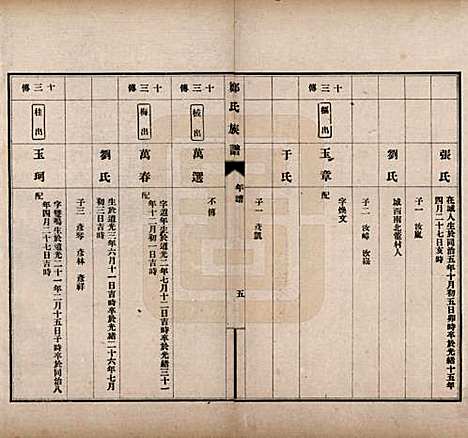 張氏
在城人生於同治五年十月初五日卯時卒於光緒十五年
四月二十七日亥時
子一 汝嵐
劉氏
城西南北蕫村人
子二 汝嶧 汝嶺
十三傳
樞出
玉章
字煥文
配
于氏
子一 彥凱
鄭氏族譜
年譜
五
十三傳
棫出
萬選
不傳
十三傳
梅出
萬春
字遐年生於道光二年七月十二日吉時卒於光緒三十一
年十二月初一日吉時
配
劉氏
生於道光三年六月十一日吉時卒於光緒二十六年七月
初三日吉時
子三 彥琴 彥林 彥祥
十三傳
桂出
玉珂
字雙鳴生於道光二十一年二月十五日子時卒於同治八
年四月二十七日吉時
配